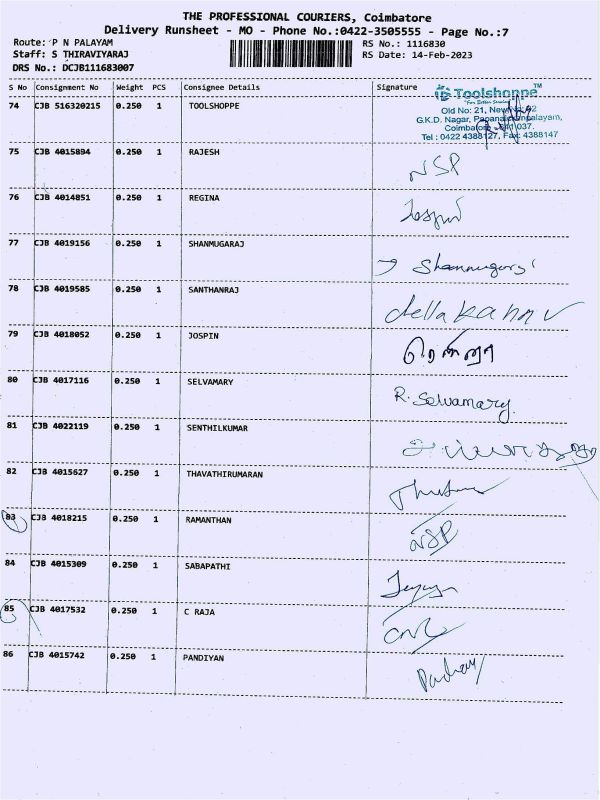 THE PROFESSIONAL COURIERS, Coimbatore
Delivery Runsheet - MO - Phone No.:0422-3505555 - Page No.:7
Route: P N PALAYAM RS No.: 1116830
Staff: S THIRAVIYARAJ RS Date: 14-Feb-2023
DRS No.: DCJB111683007
S No Consignment No Weight PCS Consignee Details Signature
Toolshoppe™
"For Better Service"
74 CJB 516320215 0.250 1 TOOLSHOPPE
Old No: 21, New
G.K.D. Nagar, Papanaickenpalayam,
Coimbatore 037.
Tel : 0422 4388127, Fax: 4388147
75 CJB 4015894 0.250 1 RAJESH NSP
76 CJB 4014851 0.250 1 REGINA
77 CJB 4019156 0.250 1 SHANMUGARAJ
78 CJB 4019585 0.250 1 SANTHANRAJ
79 CJB 4018052 0.250 1 JOSPIN
80 CJB 4017116 0.250 1 SELVAMARY R. Selvamary
81 CJB 4022119 0.250 1 SENTHILKUMAR
82 CJB 4015627 0.250 1 THAVATHIRUMARAN
83 CJB 4018215 0.250 1 RAMANTHAN NSP
84 CJB 4015309 0.250 1 SABAPATHI
85 CJB 4017532 0.250 1 C RAJA
86 CJB 4015742 0.250 1 PANDIYAN